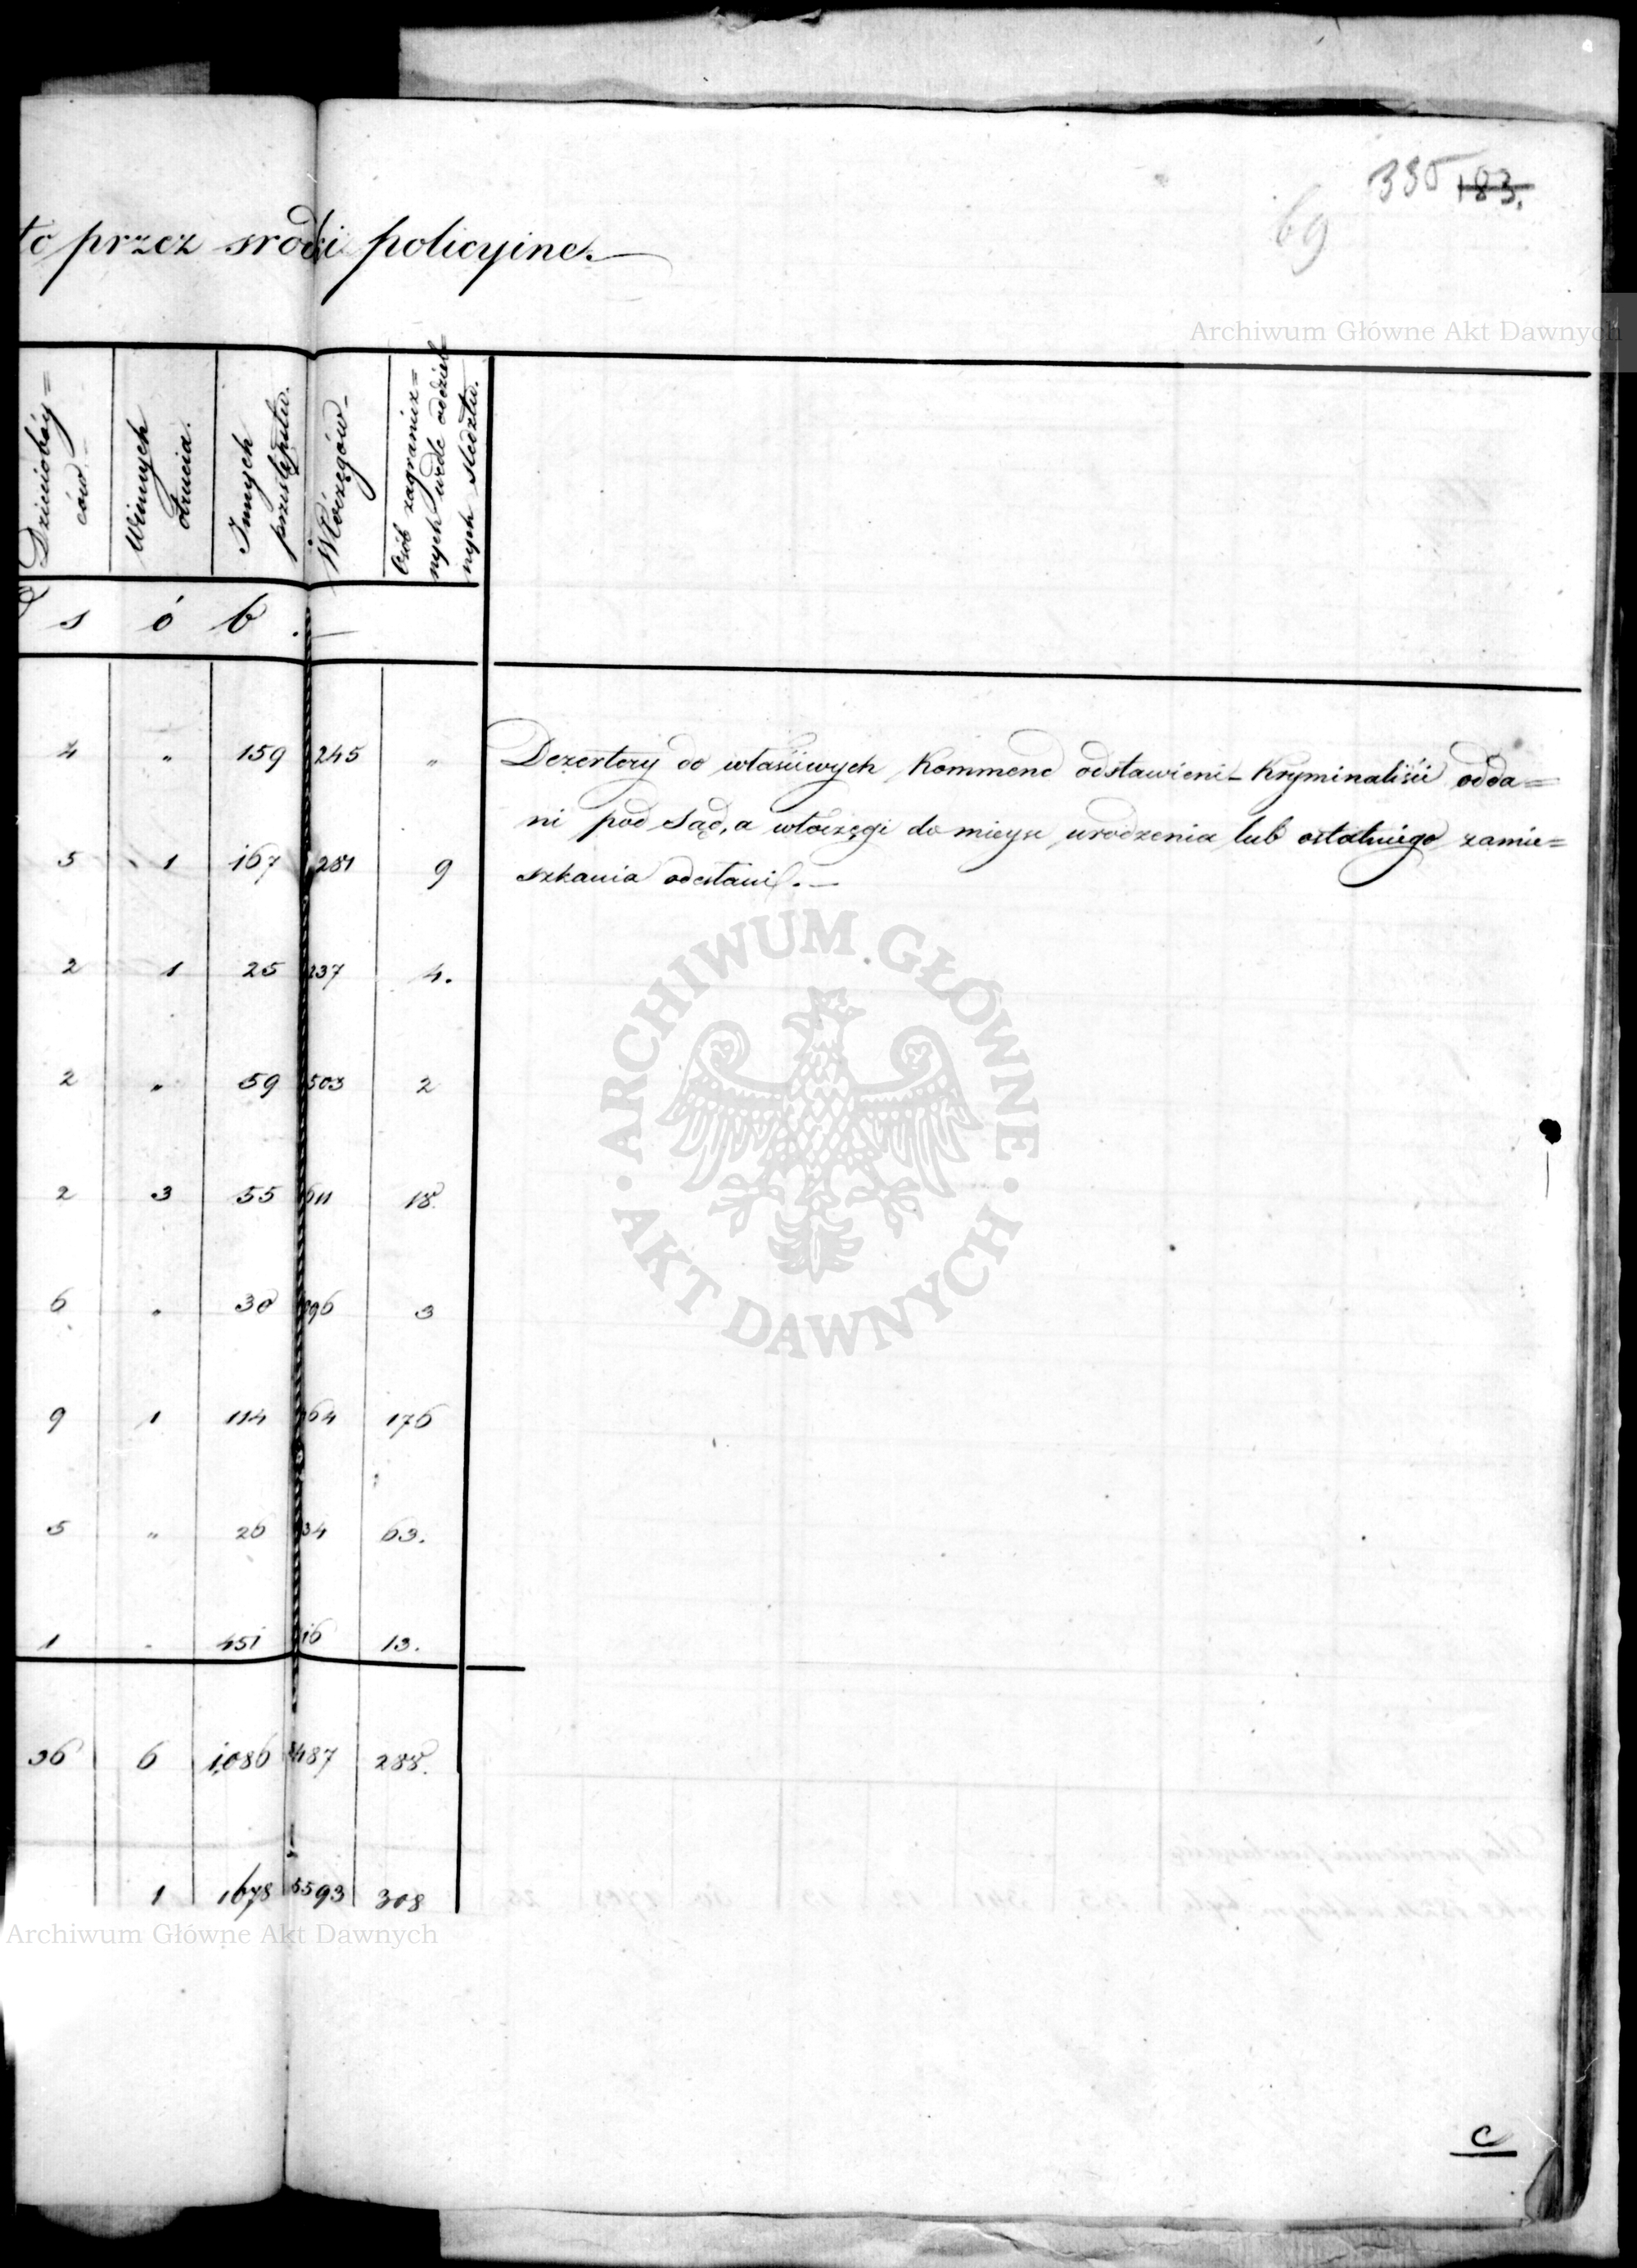 335 183.
69
to przez srodki policyine.
Archiwum Główne Akt Dawnych
Dzieciobóy=
ców.
Winnych
otrucia.
Innych
przestępstw.
Włóczęgów
Osób zagranicz=
nych wedle oddziel=
nych śledztw.
s ó b.
4 " 159 245 "
5 1 167 281 9
2 1 25 237 4.
2 " 59 503 2
2 3 55 611 18.
6 " 30 96 3
9 1 114 64 176
5 " 26 34 63.
1 " 451 16 13.
36 6 1,086 487 288.
1 1678 5593 308
Dezertery do właściwych kommend odstawieni – kryminaliści odda=
ni pod Sąd, a włóczęgi do mieysc urodzenia lub ostatniego zamie=
szkania odesłani.
ARCHIWUM GŁÓWNE AKT DAWNYCH
Archiwum Główne Akt Dawnych
C